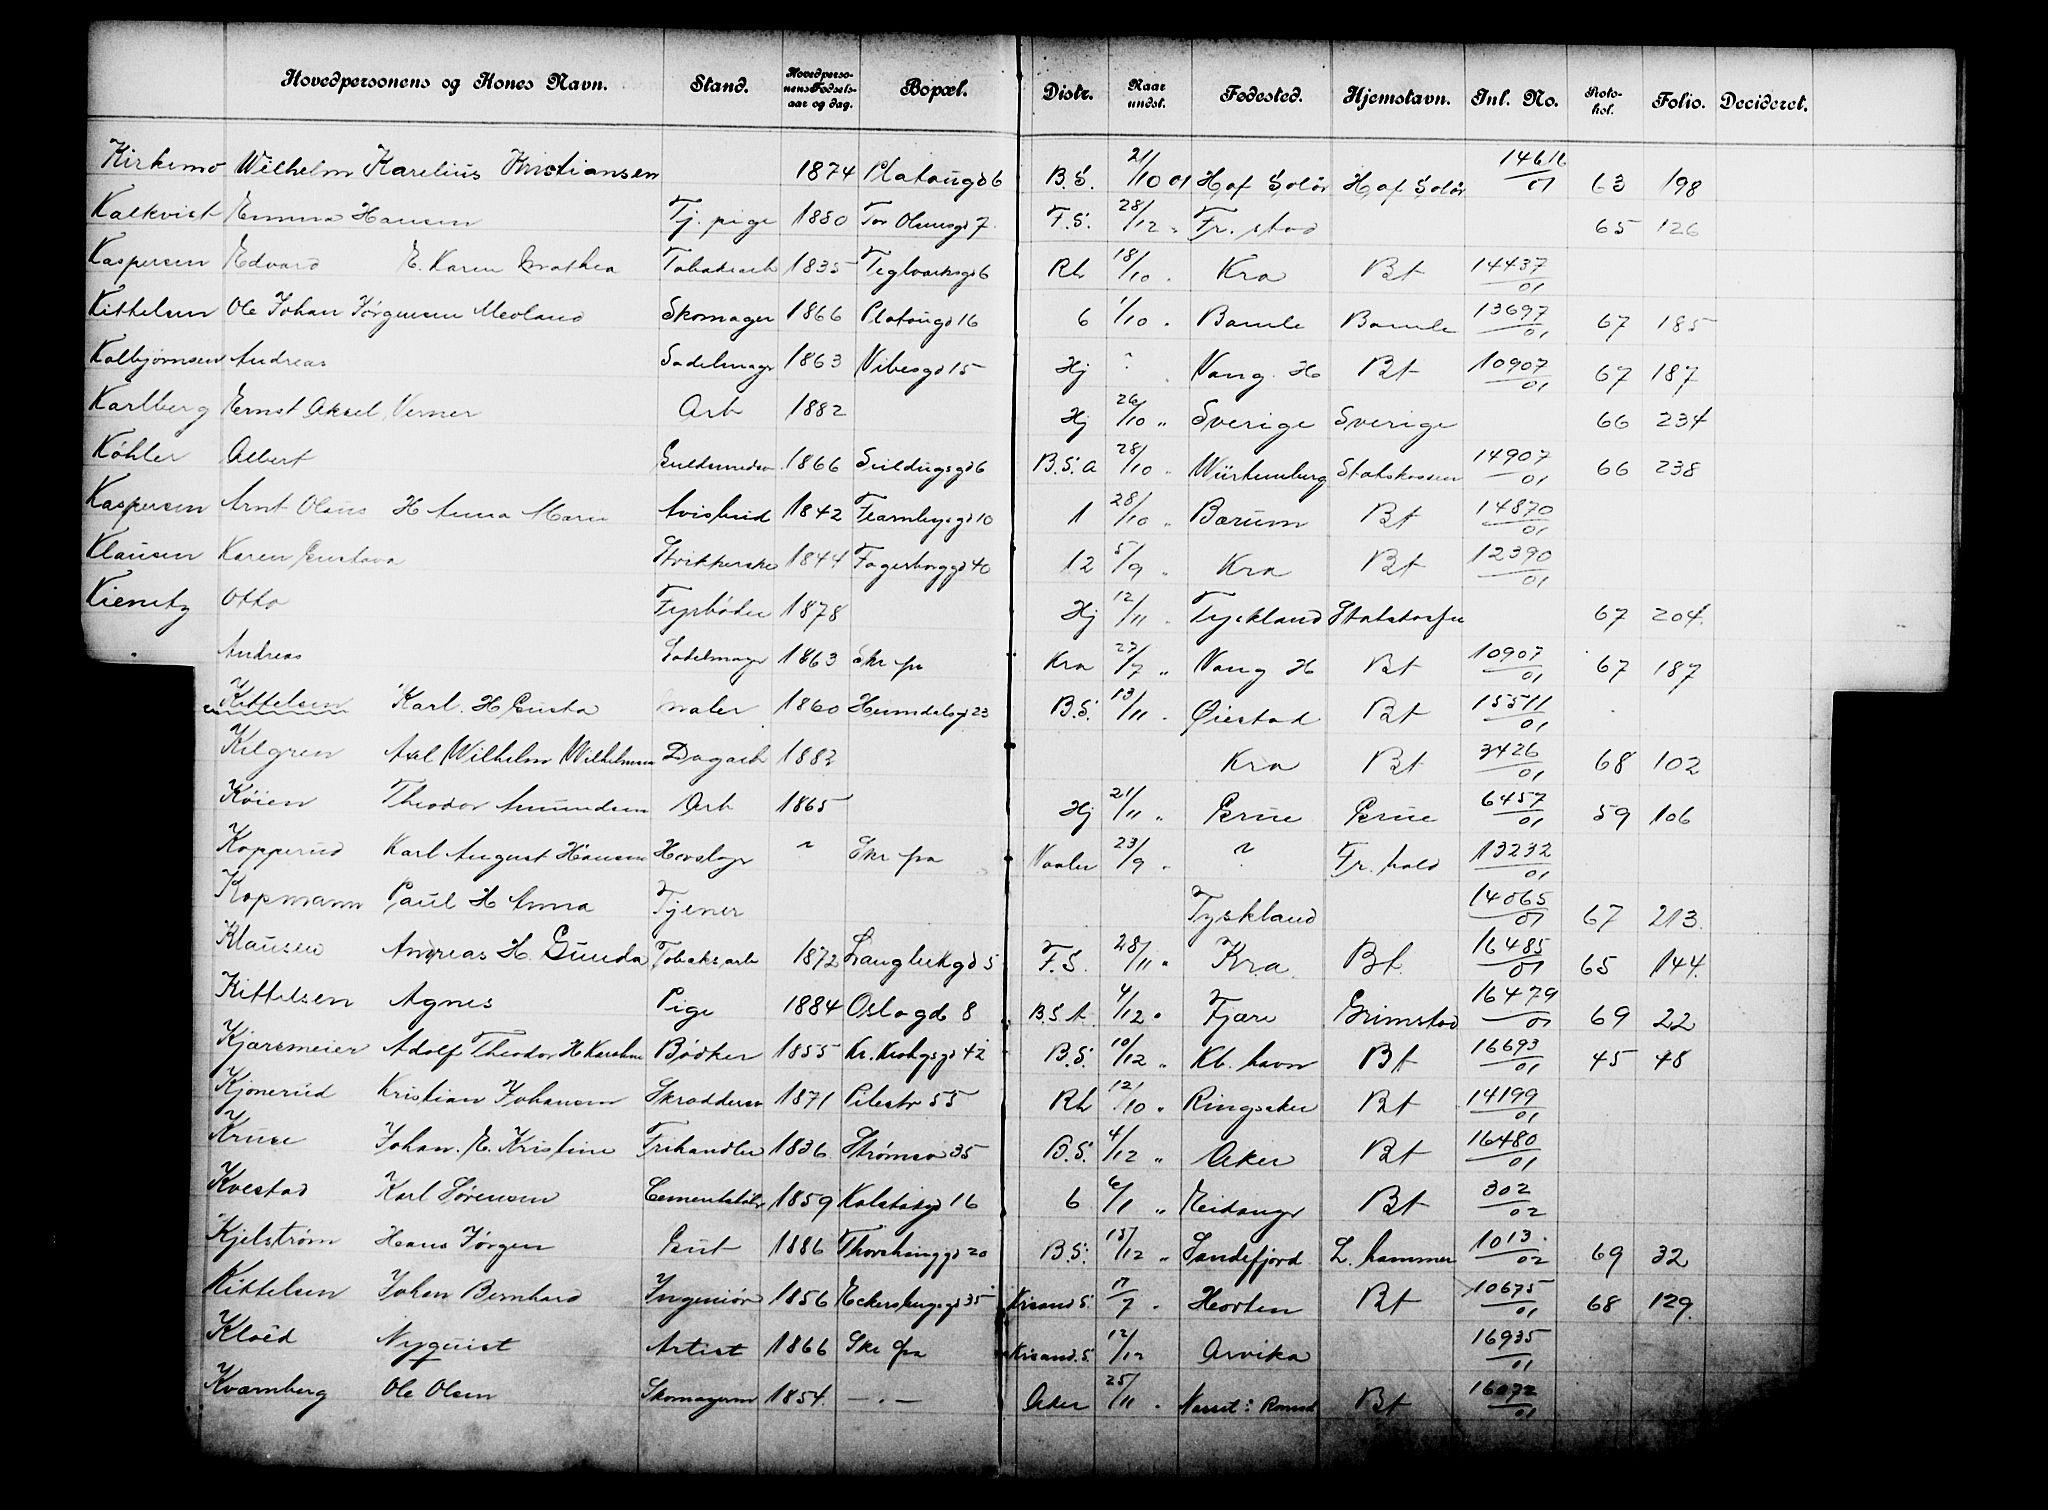 Hovedpersonens og Kones Navn. Stand. Hovedpersonens Fødselsaar og dag. Bopæl. Distr. Naar undst. Fødested. Hjemstavn. Inl. No. Protokol. Folio. Decideret.
Kirkemo Wilhelm Karelius Kristiansen 1874 Platougd 6 B.S. 21/10 01 Hof Solør Hof Solør 14616/01 63 198
Kalkvist Emma Hansen Tj. pige 1880 Tor Olsensgd 7 F.S. 28/12 " Fr. stad 65 126
Kaspersen Edvard E. Karen Mathea Tobaksarb 1835 Teglverksgd 6 Rh 18/10 " Kra Bt 14437/01
Kittelsen Ole Johan Jørgensen Meoland Skomager 1866 Platougd 16 6 1/10 " Bamle Bamle 13697/01 67 185
Kolbjørnsen Andreas Sadelmager 1863 Vibesgd 15 Hj " Vang. H Bt 10907/01 67 187
Karlberg Ernst Aksel Verner Arb 1882 Hj 26/10 " Sverige Sverige 66 234
Köhler Albert Guldsmedsv 1866 B.S. a 28/10 " Würtemberg Statskassen 14907/01 66 238
Kaspersen Arnt Olaus H Anna Marie Avisbud 1842 Fearnleysgd 10 1 28/10 " Bærum Bt 14870/01
Klausen Karen Gustava Strikkerske 1844 Fagerborggd 40 12 5/9 " Kra Bt 12390/01
Kienitz Otto Fyrbøder 1878 Hj 12/11 " Tyskland Statskassen 67 204.
Andreas Sadelmager 1863 Skr fra Kra 27/7 " Vang H Bt 10907/01 67 187
Kittelsen Karl. H Gusta maler 1860 Heimdalsgd 23 B.S. 13/11 " Øiestad Bt 15511/01
Kilgren Axl Wilhelm Wilhelmsen Dagarb 1882 Kra Bt 3426/01 68 102
Köien Theodor Amundsen Arb 1865 Hj 21/11 " Grue Grue 6457/01 59 106
Kopperud Karl August Hansen Hovslagr ? Skr fra Vaaler 23/9 " ? Fr. hald 13232/01
Kopmann Paul H Anna Tjener Tyskland 14065/01 67 213.
Klausen Andreas H. Gunda Tobaksarb 1872 Langlekgd 5 F.S. 28/11 " Kra. Bt. 16485/01 65 144.
Kittelsen Agnes Pige 1884 Oslogd 8 B.S.A. 4/12 " Fjære Grimstad 16479/01 69 22
Kjærsmeier Adolf Theodor H Karoline Bødker 1855 Kr. Krohgsgd 42 B.S. 10/12 " Kb. havn Bt 16693/01 45 48
Kjønerud Kristian Johansen Skræddersv 1871 Pilestr 55 Rh 12/10 " Ringsaker Bt 14199/01
Kruse Johan. E. Kristine Frihandler 1836. Strømsv 35 B.S. 4/12 " Aker Bt 16480/01
Kvestad Karl Sørensen Cementstøber 1859 Kolstadgd 16 6 6/1 " Eidanger Bt 302/02
Kjelstrøm Hans Jørgen Gut 1886 B.S. 13/12 " Sandefjord L. hammer 1013/02 69 32
Kittelsen Johan Bernhard Ingeniør 1856 Eckersbergsgd 35 Krsand S. 17/7 " Horten Bt 10675/01 68 129.
Kloëd Nyquist Artist 1866 Skr fra Krsand. S. 12/12 Arvika 16935/01
Kvarnberg Ole Olsen Skomagerm 1854. — . — Aker 25/11 " Næsset: Romsd Bt 16072/01